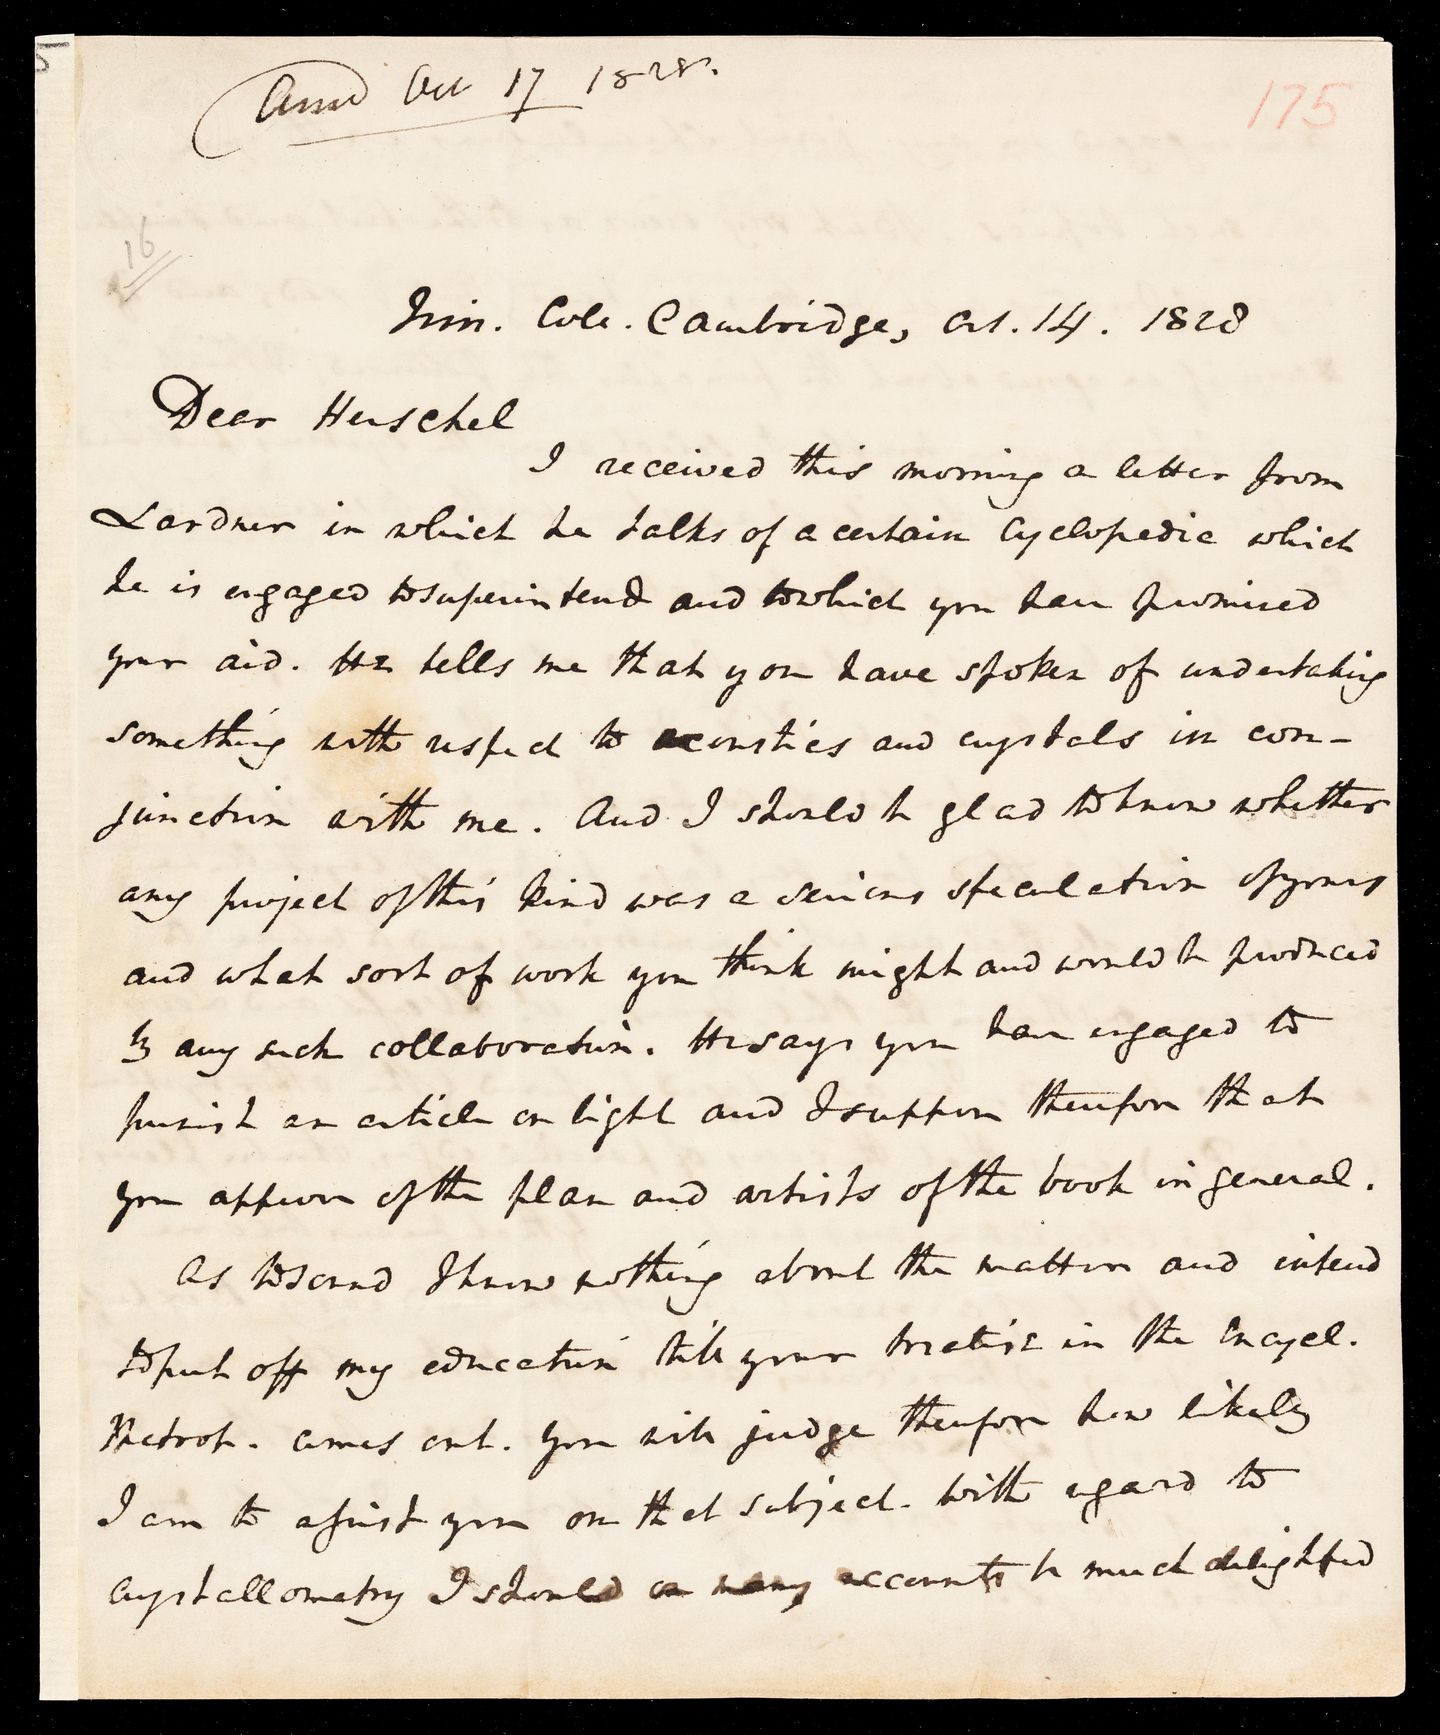 Ansd Oct 17 1828.
175
16
Trin. Coll. Cambridge, Oct. 14. 1828
Dear Herschel
I received this morning a letter from
Lardner in which he talks of a certain Cyclopedia which
he is engaged to superintend and to which you have promised
your aid. He tells me that you have spoken of undertaking
something with respect to acoustics and crystals in con-
junction with me. And I should be glad to know whether
any project of this kind was a serious speculation of yours
and what sort of work you think might and would be produced
by any such collaboration. He says you have engaged to
furnish an article on light and I suppose therefore that
you approve of the plan and artists of the book in general.
As to sound I know nothing about the matter and intend
to put off my education till your treatise in the Encycl.
Metrop. comes out. You will judge therefore how likely
I am to assist you on that subject. With regard to
crystallometry I should on many accounts be much delighted